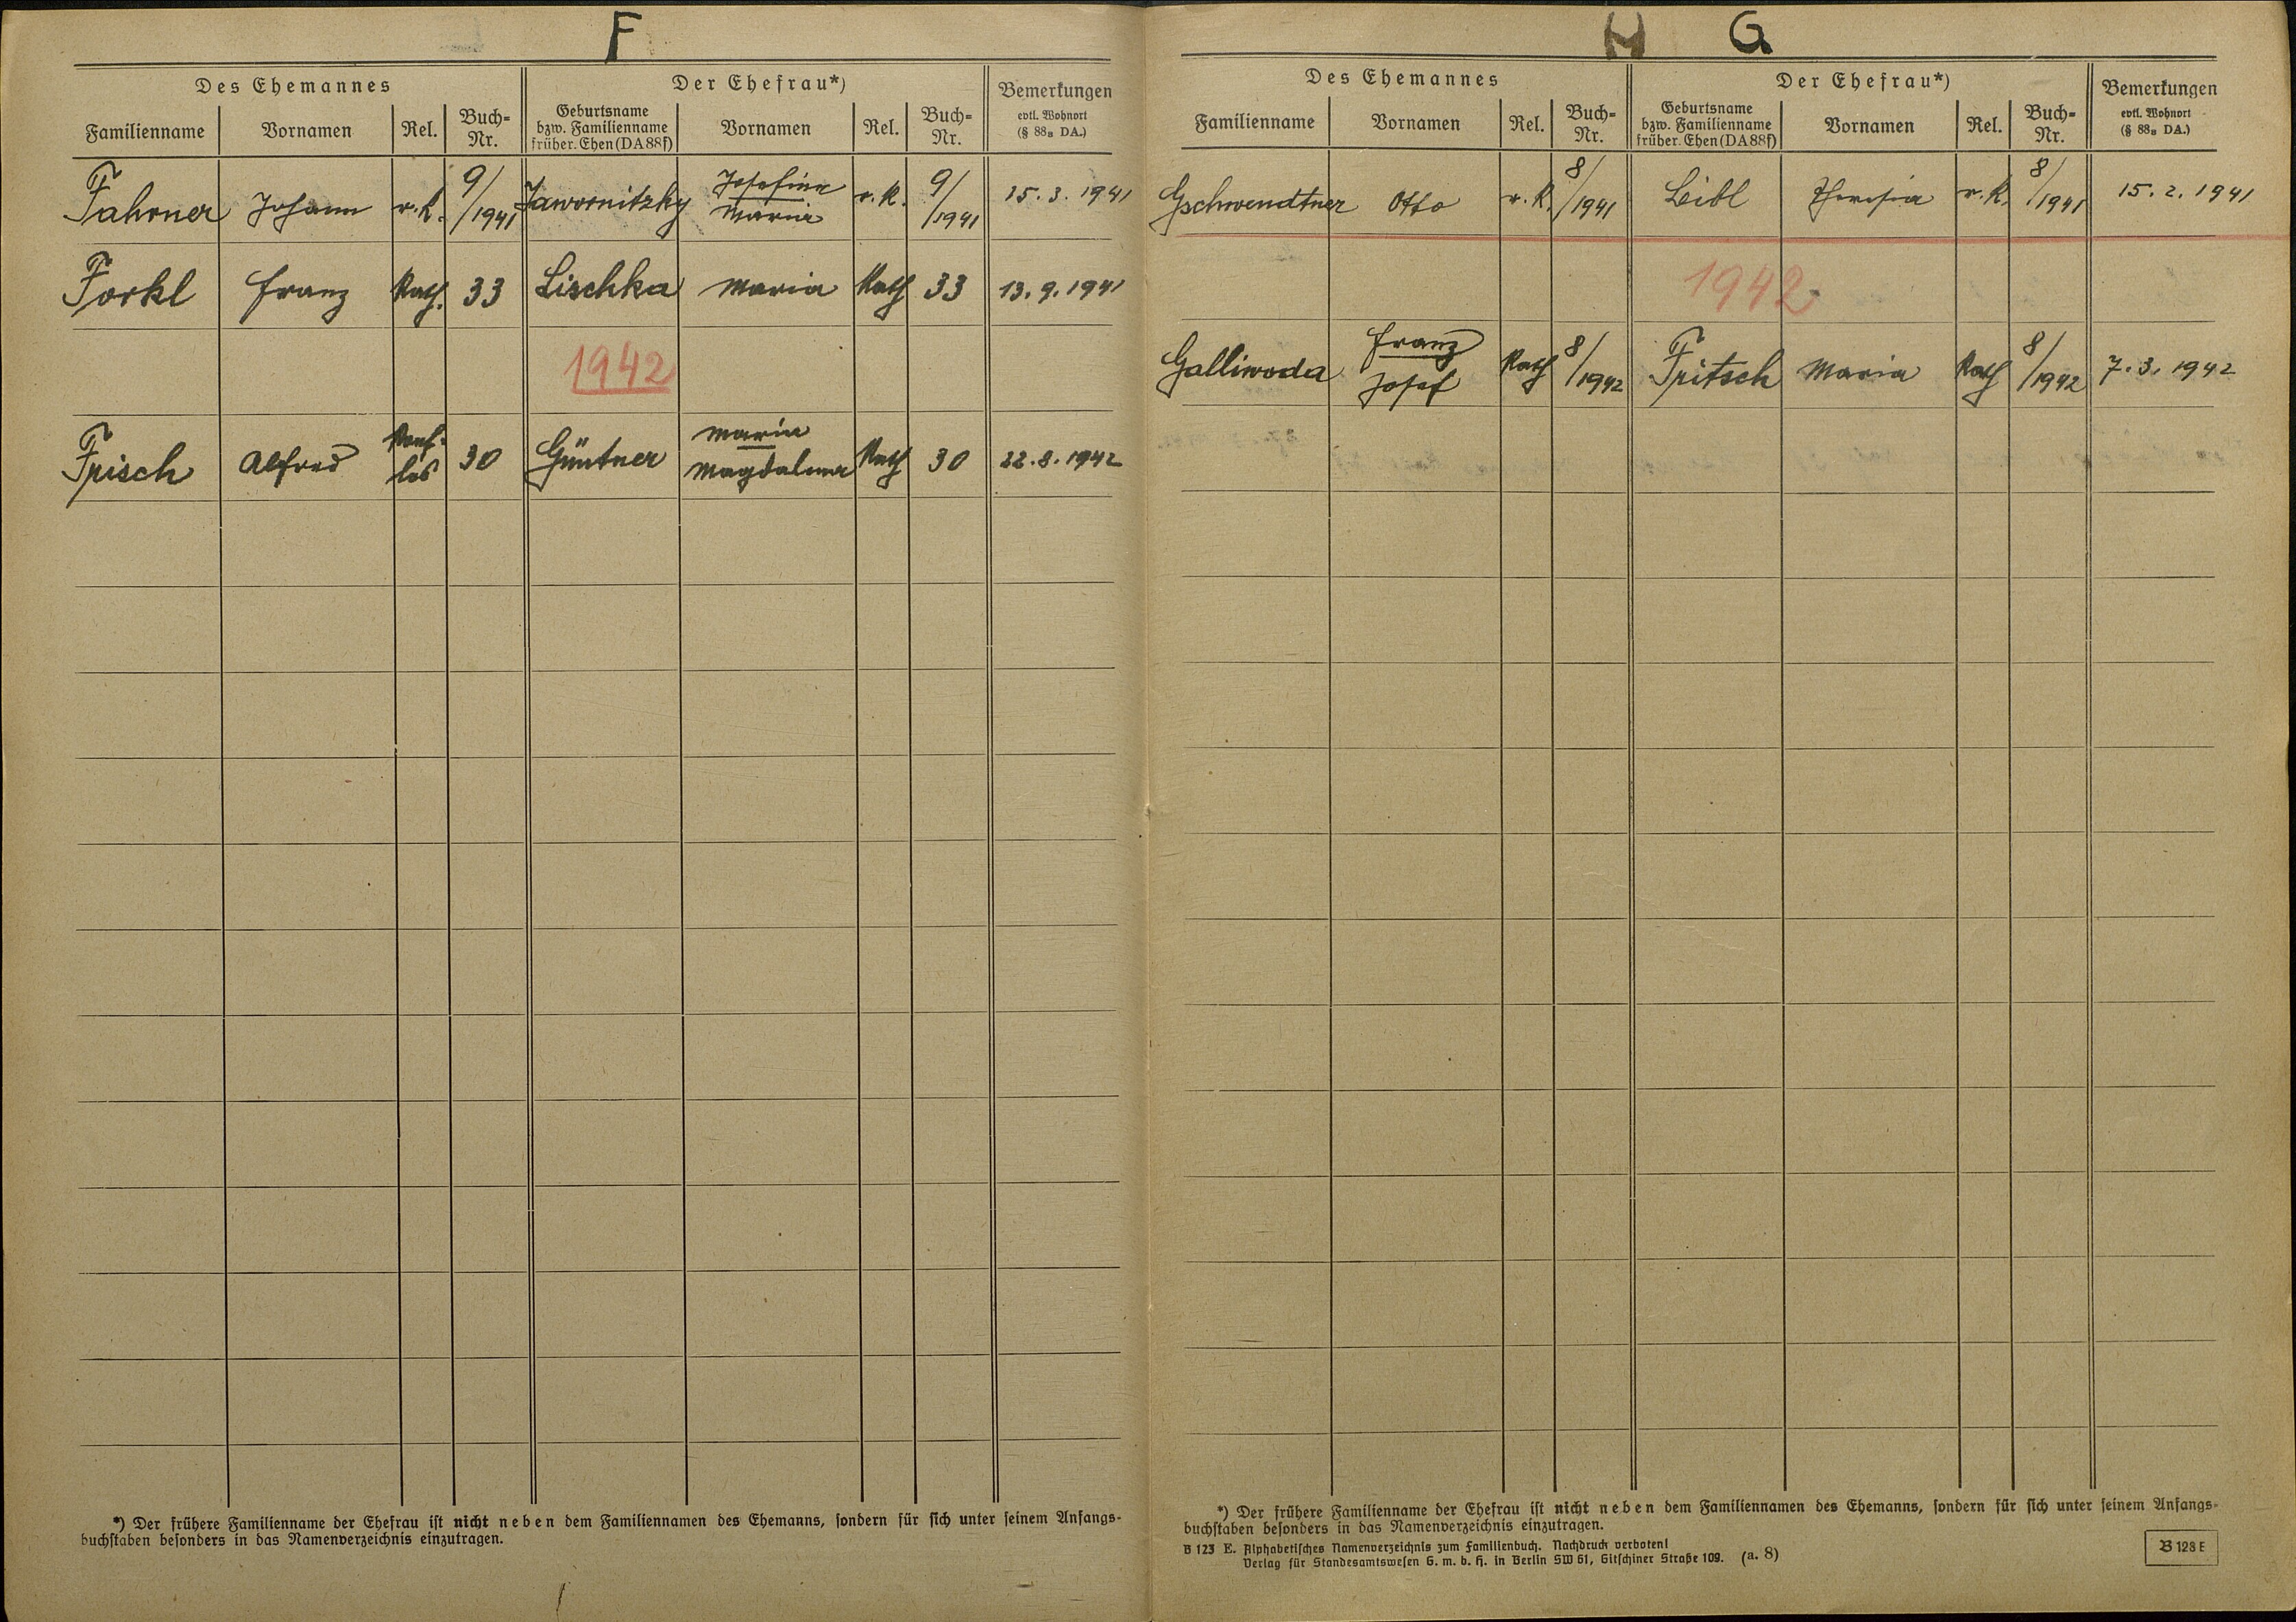 F
Des Ehemannes
Der Ehefrau*)
Bemerkungen
evtl. Wohnort
(§ 88a DA.)
Familienname
Vornamen
Rel.
Buch-
Nr.
Geburtsname
bzw. Familienname
früher. Ehen (DA 88f)
Vornamen
Rel.
Buch-
Nr.
Fahrner Johann r.k. 9/1941 Jawornitzky Josefine Maria r.k. 9/1941 15.3.1941
Forkl Franz Kath. 33 Lischka Maria Kath 33 13.9.1941
1942
Frisch Alfred Konf.los 30 Güntner Maria Magdalena Kath 30 22.8.1942
*) Der frühere Familienname der Ehefrau ist nicht neben dem Familiennamen des Ehemanns, sondern für sich unter seinem Anfangs-
buchstaben besonders in das Namenverzeichnis einzutragen.
H G
Des Ehemannes
Der Ehefrau*)
Bemerkungen
evtl. Wohnort
(§ 88a DA.)
Familienname
Vornamen
Rel.
Buch-
Nr.
Geburtsname
bzw. Familienname
früher. Ehen (DA 88f)
Vornamen
Rel.
Buch-
Nr.
Gschwendtner Otto r.k. 8/1941 Leibl Theresia r.k. 8/1941 15.2.1941
1942
Galliwoda Franz Josef Kath 8/1942 Fritsch Maria Kath 8/1942 7.3.1942
*) Der frühere Familienname der Ehefrau ist nicht neben dem Familiennamen des Ehemanns, sondern für sich unter seinem Anfangs-
buchstaben besonders in das Namenverzeichnis einzutragen.
B 123 E. Alphabetisches Namenverzeichnis zum Familienbuch. Nachdruck verboten!
Verlag für Standesamtswesen G. m. b. H. in Berlin SW 61, Gitschiner Straße 109. (a. 8)
B 128 E